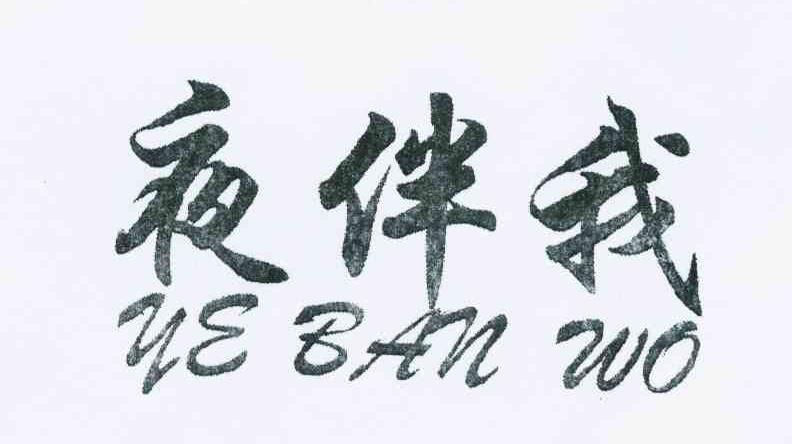 夜伴我
YE BAN WO